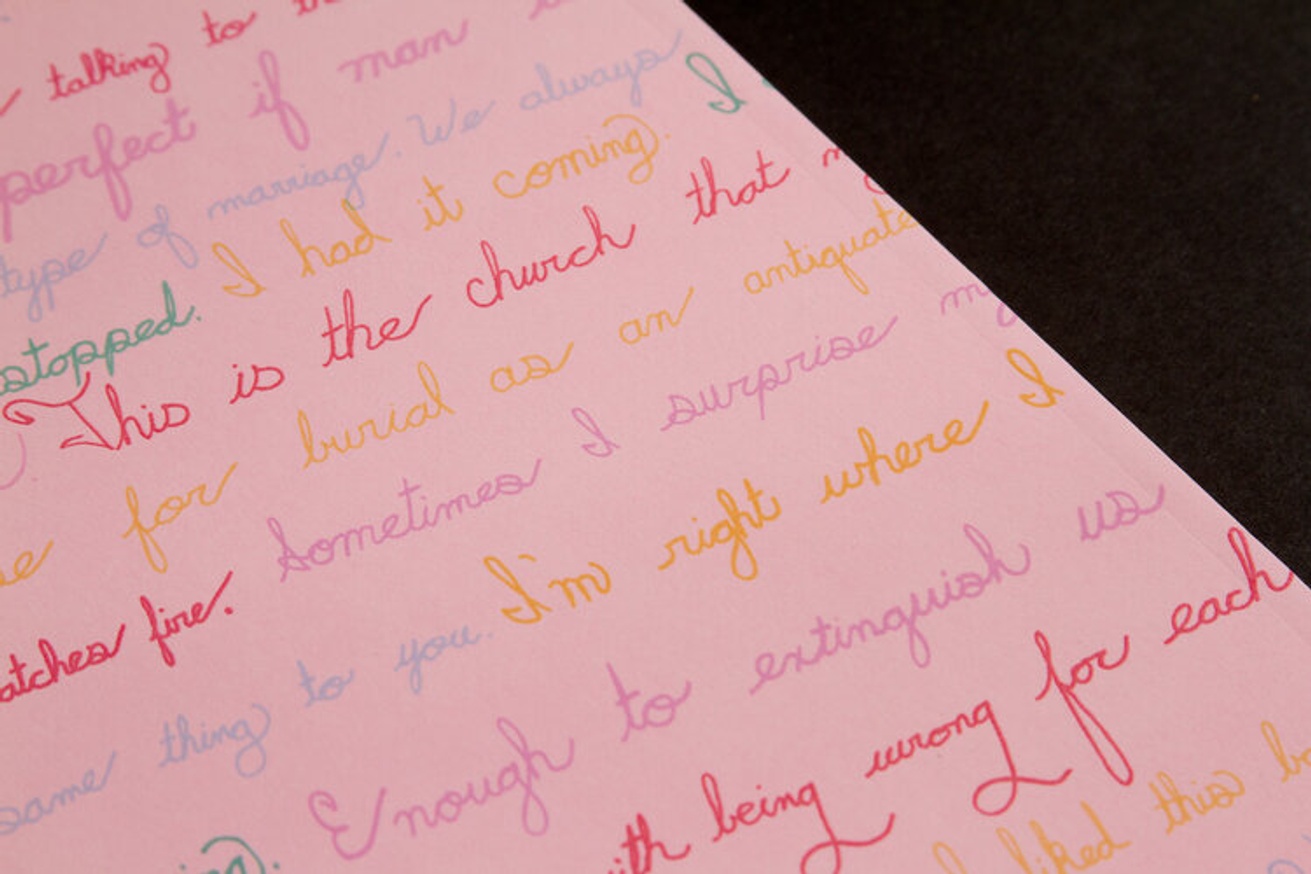 talking to
perfect if man
type of marriage. We always
stopped. I had it coming. I
This is the church that
for burial as an
catches fire. Sometimes I surprise
same thing to you. I'm right where I
Enough to extinguish us
with being wrong for each
liked this